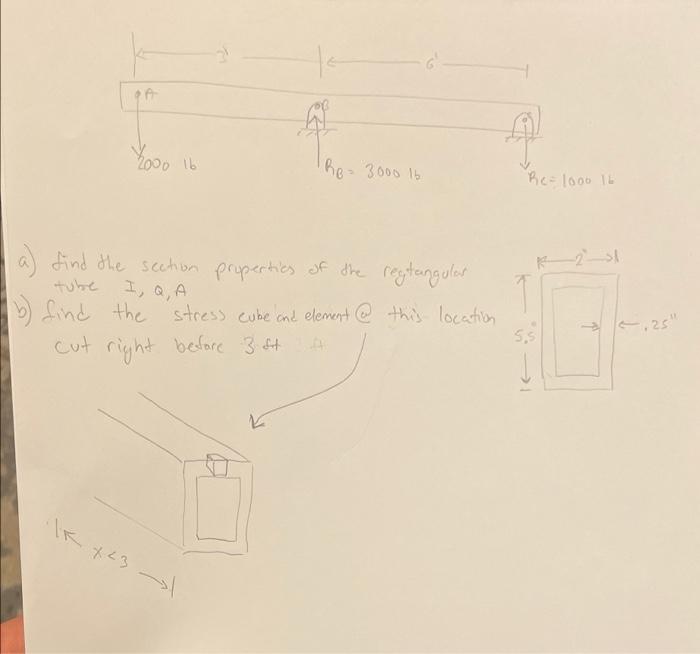 3' 6'
A B
2000 lb RB = 3000 lb Rc = 1000 lb
a) find the section properties of the regtangular
tube I, Q, A
b) find the stress cube and element @ this location
cut right before 3 ft
2"
5.5"
.25"
x<3